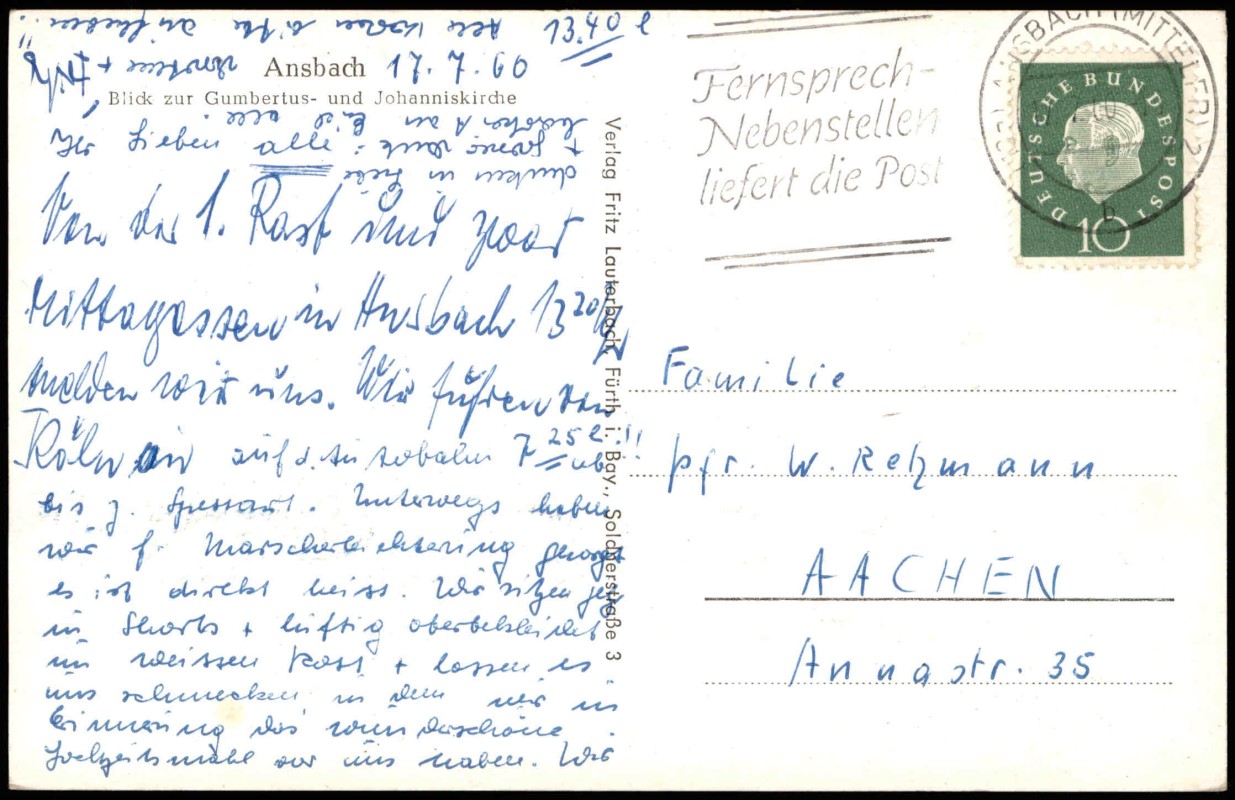 Ansbach 17.7.60
Blick zur Gumbertus- und Johanniskirche
Ihr Lieben alle!
Von der 1. Rast und zwar
Mittagessen in Ansbach 13 20
melden wir uns. Wir fuhren von
Köln auf d. Autobahn 7 25 ab
bis z. Spessart. Unterwegs haben
wir f. Marscherleichterung gesorgt
es ist direkt heiss. Wir sitzen jetzt
in Shorts + luftig oberbekleidet
im weissen Rössl + lassen es
uns schmecken, in dem wir in
Erinnerung das wunderschöne
Hochzeitsmahl vor uns haben. Wir
danken in Liebe
alle
13.40
Verlag Fritz Lauterbach, Fürth i. Bay., Soldnerstraße 3
Fernsprech-
Nebenstellen
liefert die Post
ANSBACH (MITTELFR) 2
b
DEUTSCHE BUNDESPOST
10
Familie
Pfr. W. Rehmann
AACHEN
Annastr. 35